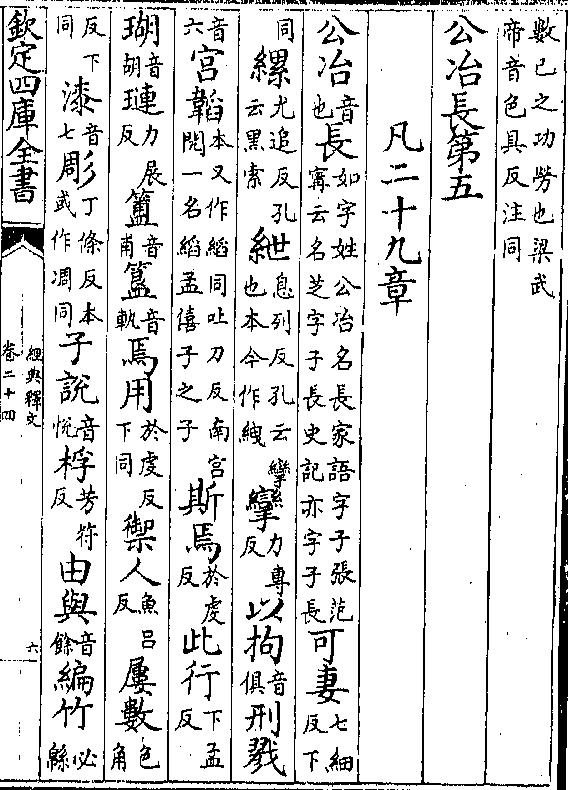 數已之功勞也梁武帝音色具反注同
公冶長第五
凡二十九章
公冶音也長如字姓公冶名長家語字子張范甯云名芝字子長史記亦字子長可妻七細反下
同縲尤追反孔云黑索紲息列反孔云攣也本今作絏攣力專反以拘音俱刑戮
音六宮韜本又作縚同吐刀反南宮閱一名縚孟僖子之子斯焉於虔反此行下孟反
瑚音胡璉力展反簠音甫簋音軌焉用於虔反下同禦人魚呂反屢數色角
反下同漆音七彫丁條反本或作凋同子說音悅桴芳符反由與音餘編竹必緜
欽定四庫全書
經典釋文
卷二十四
六